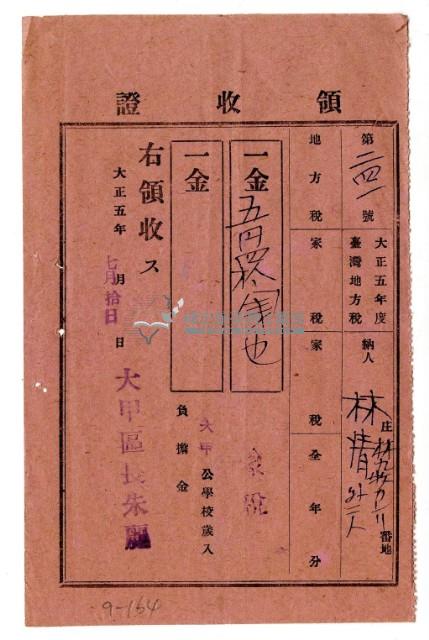 領收證
第二四一號
大正五年度
臺灣地方稅
納人
庄
番地
林清外二人
地方稅
家稅
家稅全年分
一金
五円四拾
也
一金
家稅
大甲公學校歲入
負擔金
右領收ス
大正五年 月 日
七月拾日
大甲區長朱麗
9-164